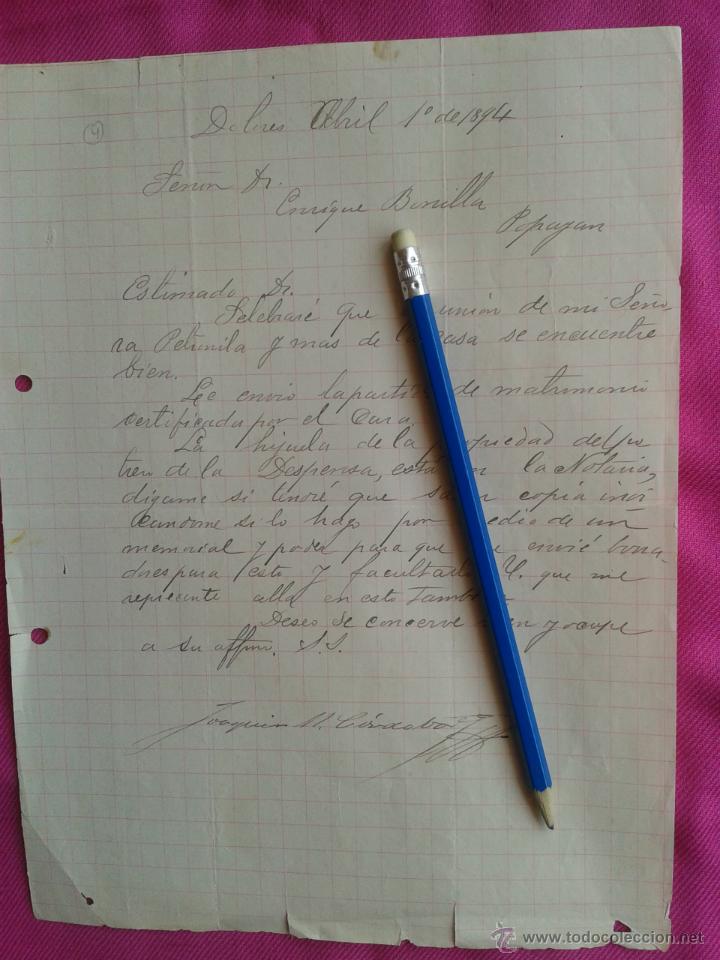 4
Dolores Abril 1º de 1894
Señor Dr.
Enrique Bonilla
Popayan
Estimado Dr.
Selebraré que unión de mi Seño
ra Petronila y mas de la casa se encuentre
bien.
Le envio la partida de matrimonio
certificada por el Cura.
La hijuela de la propiedad del po
trero de la Despensa, está en la Notaria,
digame si tendré que sacar copia indi
candome si lo hago por medio de un
memorial y poder para que me envié borra-
dores para esto y facultarlo U. que me
represente alla en esto tambien
Deseo se concerve bien y ocupe
a su affmo. S.S.
Joaquin M. Córdoba
www.todocoleccion.net